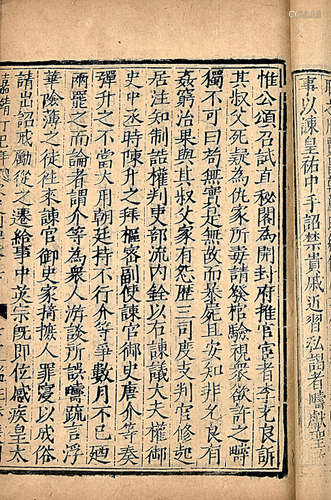 事以諫皇祐中手詔禁貴戚近習私謁者疇獻聖
惟公頌召試直秘閣為開封府推官宦者李允良訴
其叔父死疑為仇家所毒請發棺驗視眾欲許之疇
獨不可曰苟無實是無故而暴尸且安知非允良有
姦窮治果與其叔父家有怨歴三司度支判官修起
居注知制誥權判吏部流内銓以右諫議大夫權御
史中丞時陳升之拜樞宻副使諫官御史唐介等奏
彈升之不當大用朝廷持不行介等爭數月不已乃
兩罷之而論者謂介等為眾人游談所誤疇疏言浮
華險薄之徒往來諫官御史家掎摭人罪寖以成俗
請出詔戒勵從之遷給事中英宗既即位感疾皇太
嘉靖丁巳年